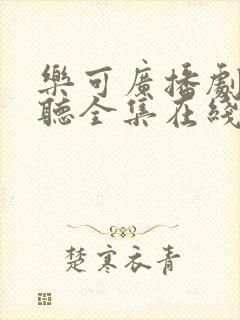 樂可廣播劇
聽全集在綫
楚寒衣青